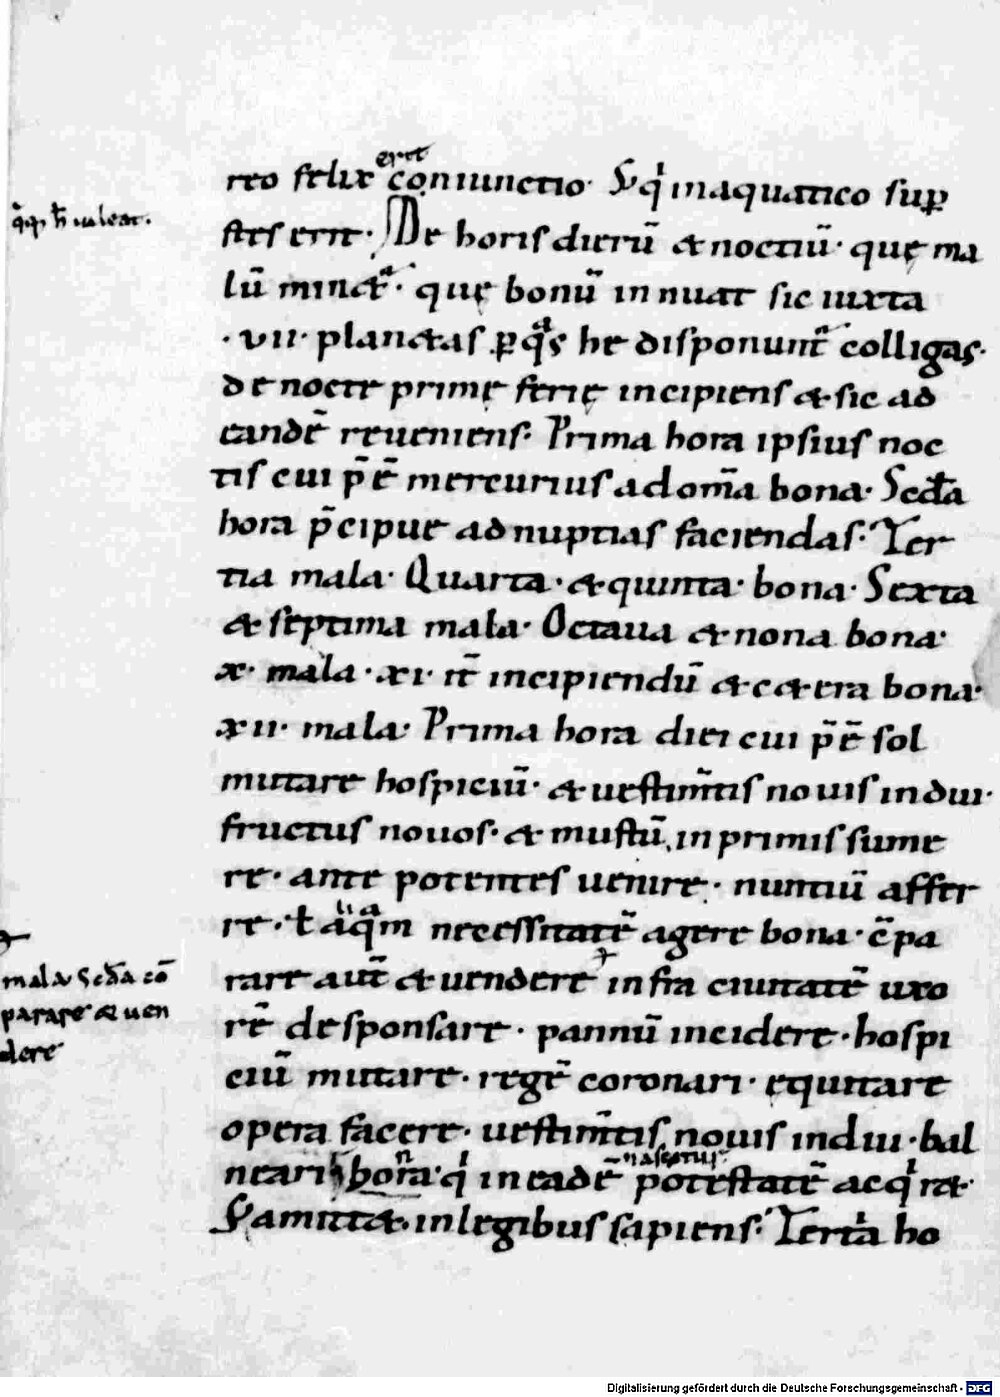 erit
reo felix coniunctio. S; q i inaquatico sup
stes erit. De horis dierū & noctiū. quę ma
lū minat̄. quę bonū innuat sic iuxta
.vii. planetas ꝑ q̊s he disponunt̄ colligas.
de nocte primę ferię incipiens & sic ad
eandē reueniens. Prima hora ipsius noc
tis cui p̄ē mercurius ad om̄a bona. Scda
hora p̄cipue ad nuptias faciendas. Ter
tia mala. Quarta. & quinta. bona. Sexta
& septima mala. Octaua & nona bona.
x. mala. xi. it̄ incipiendū & cetera bona.
xii. mala. Prima hora diei cui p̄ē sol
mutare hospiciū. & uestim̄tis nouis indui.
fructus nouos. & mustū inprimis sume
re. ante potentes uenire. nuntiū affer
re. ł aliq̊m necessitatē agere bona. c̄pa
rare aut̄ & uendere infra ciuitatē uxo
mala Scda cō
parare & uen
dere
rē desponsare. pannū incidere. hospi
ciū mutare. regē coronari. equitare
opera facere. uestim̄tis nouis indui. bal
neari bona. q i in eadē nascetur potestatē acq iret.
S; amittet. inlegibus sapiens. Tertia ho